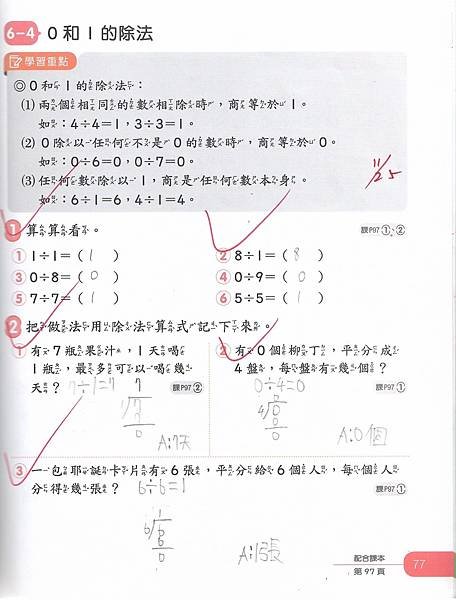 6-4 0和1的除法
學習重點
◎0和1的除法:
(1) 兩個相同的數相除時,商等於1。
如:4÷4=1,3÷3=1。
(2) 0除以任何不是0的數時,商等於0。
如:0÷6=0,0÷7=0。
(3) 任何數除以1,商是任何數本身。
如:6÷1=6,4÷1=4。
11/25
1 算算看。 課P97①、②
① 1÷1=( 1 ) ② 8÷1=( 8 )
③ 0÷8=( 0 ) ④ 0÷9=( 0 )
⑤ 7÷7=( 1 ) ⑥ 5÷5=( 1 )
2 把做法用除法算式記下來。
① 有7瓶果汁,1天喝
1瓶,最多可以喝幾
天? 7÷1=7 課P97②
7
1 7
7
0
A:7天
② 有0個柳丁,平分成
4盤,每盤有幾個?
0÷4=0 課P97①
0
4 0
0
0
A:0個
③ 一包耶誕卡片有6張,平分給6個人,每個人
分得幾張? 6÷6=1 課P97①
1
6 6
6
0
A:1張
配合課本
第97頁
77